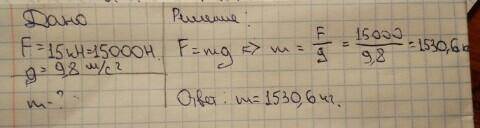 Дано
F=15кН=15000Н.
g=9,8 м/с²
m-?
Решение:
F=mg => m = F/g = 15000/9,8 = 1530,6 к
Ответ: m=1530,6 кг.